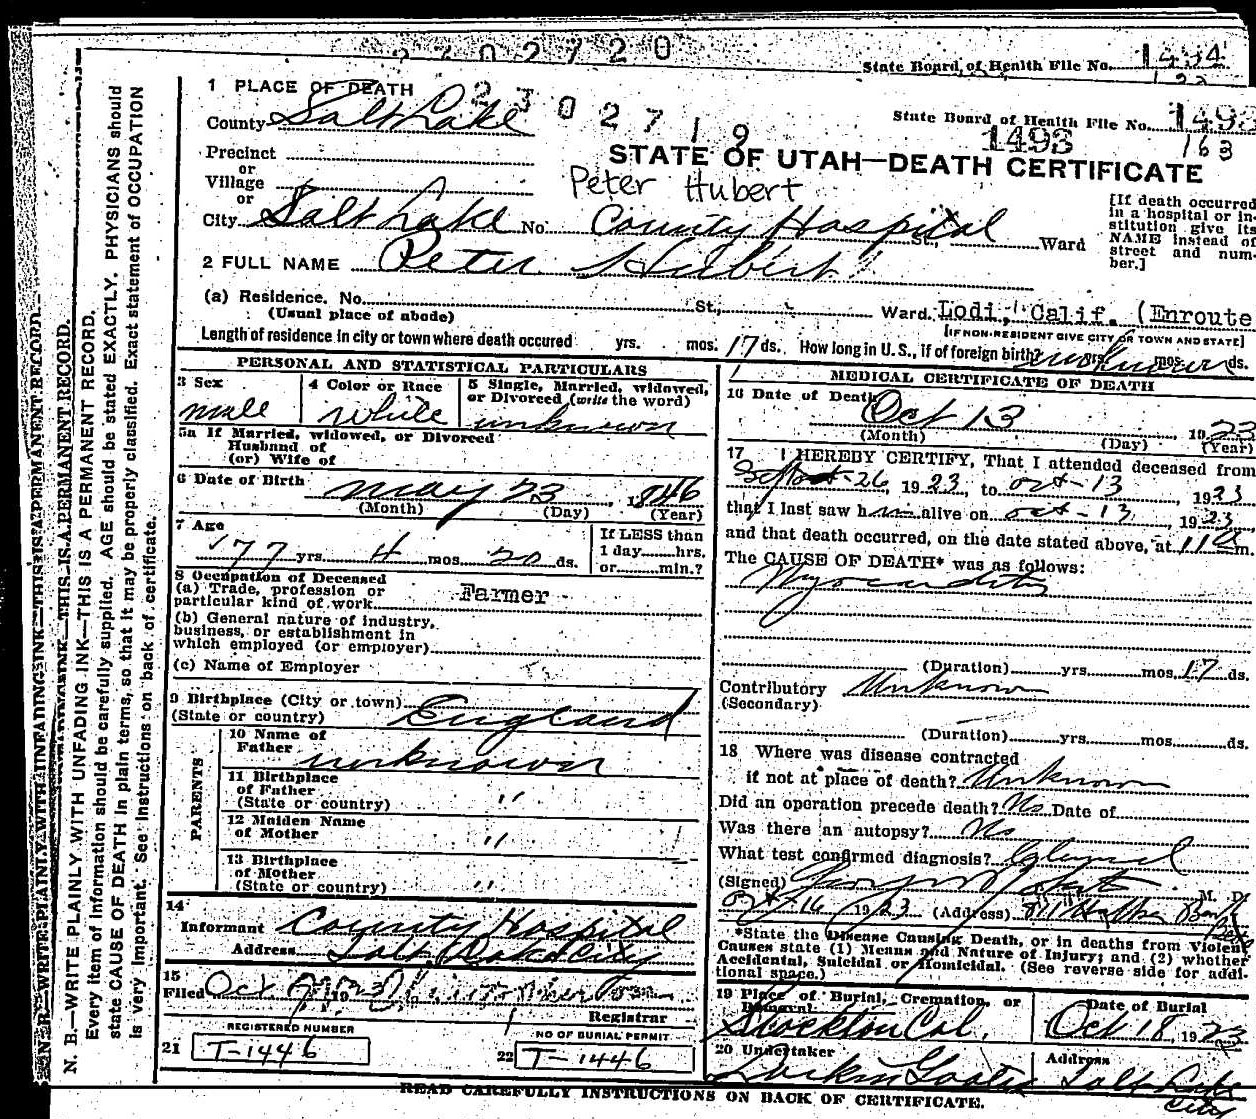 2302720
State Board of Health File No. 1494
1 PLACE OF DEATH
2302719
State Board of Health File No. 1493
1493
163
County Salt Lake
STATE OF UTAH—DEATH CERTIFICATE
Precinct
or
Village
or
Peter Hubert
City Salt Lake No. County Hospital St., Ward
[If death occurred
in a hospital or in-
stitution give its
NAME instead of
street and num-
ber.]
2 FULL NAME Peter Hubert
(a) Residence. No. St., Ward. Lodi, Calif. (Enroute
(Usual place of abode)
[IF NON-RESIDENT GIVE CITY OR TOWN AND STATE]
Length of residence in city or town where death occured yrs. mos. 17 ds. How long in U.S., if of foreign birth? unknown mos. ds.
PERSONAL AND STATISTICAL PARTICULARS
3 Sex
male
4 Color or Race
White
5 Single, Married, widowed,
or Divorced (write the word)
unknown
5a If Married, widowed, or Divorced
Husband of
(or) Wife of
6 Date of Birth May 23 1846
(Month) (Day) (Year)
7 Age
77 yrs. 4 mos. 20 ds.
If LESS than
1 day hrs.
or min.?
8 Occupation of Deceased
(a) Trade, profession or
particular kind of work Farmer
(b) General nature of industry,
business, or establishment in
which employed (or employer)
(c) Name of Employer
9 Birthplace (City or town)
(State or country) England
PARENTS
10 Name of
Father unknown
11 Birthplace
of Father
(State or country) "
12 Maiden Name
of Mother "
13 Birthplace
of Mother
(State or country) "
14
Informant County Hospital
Address Salt Lake City
15
Filed Oct
Registrar
REGISTERED NUMBER
21 T-1446
NO OF BURIAL PERMIT
22 T-1446
MEDICAL CERTIFICATE OF DEATH
16 Date of Death Oct 13 1923
(Month) (Day) (Year)
17 I HEREBY CERTIFY, That I attended deceased from
Sept-26, 1923, to Oct-13, 1923
that I last saw h m alive on Oct-13, 1923
and that death occurred, on the date stated above, at 11 a m.
The CAUSE OF DEATH* was as follows:
Myocarditis
(Duration) yrs. mos. 17 ds.
Contributory Unknown
(Secondary)
(Duration) yrs. mos. ds.
18 Where was disease contracted
if not at place of death? Unknown
Did an operation precede death? No Date of
Was there an autopsy? No
What test confirmed diagnosis?
(Signed) M. D.
Oct 16 1923 (Address)
*State the Disease Causing Death, or in deaths from Violent
Causes state (1) Means and Nature of Injury; and (2) whether
Accidental, Suicidal or Homicidal. (See reverse side for addi-
tional space.)
19 Place of Burial, Cremation, or
Removal
Stockton Cal.
Date of Burial
Oct 18, 1923
20 Undertaker
Address
Salt Lake
City
READ CAREFULLY INSTRUCTIONS ON BACK OF CERTIFICATE.
N. B.—WRITE PLAINLY WITH UNFADING INK—THIS IS A PERMANENT RECORD.
Every item of information should be carefully supplied. AGE should be stated EXACTLY. PHYSICIANS should
state CAUSE OF DEATH in plain terms, so that it may be properly classified. Exact statement of OCCUPATION
is very important. See instructions on back of certificate.